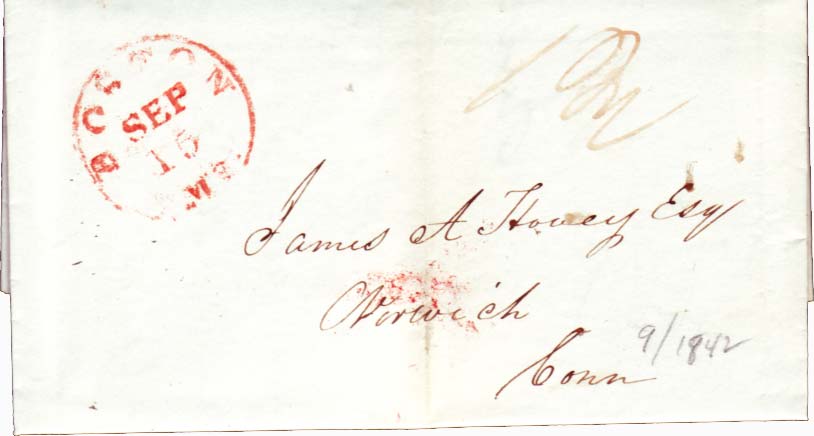 BOSTON
SEP
15
James A Hovey Esq
Norwich
Conn
9/1842